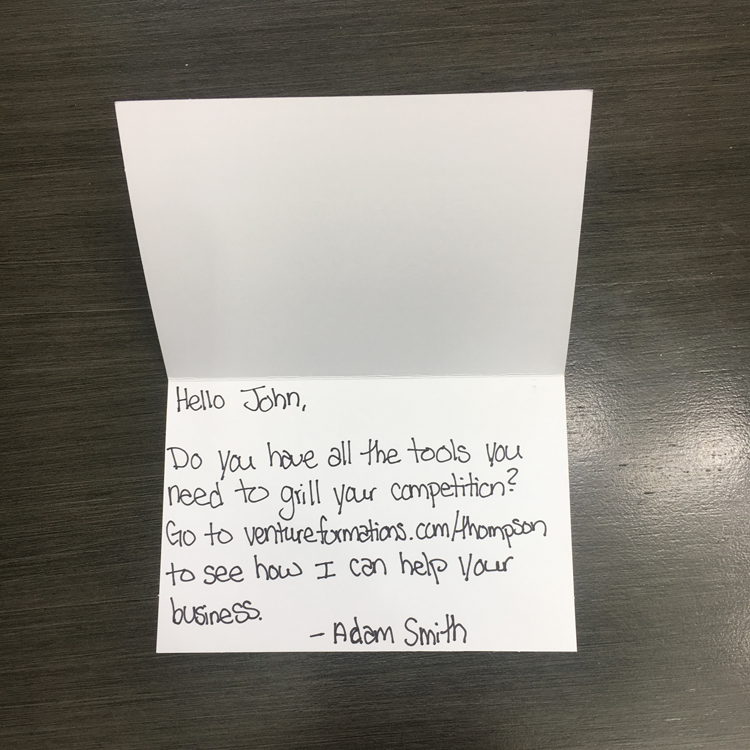 Hello John,
Do you have all the tools you
need to grill your competition?
Go to ventureformations.com/thompson
to see how I can help your
business.
- Adam Smith